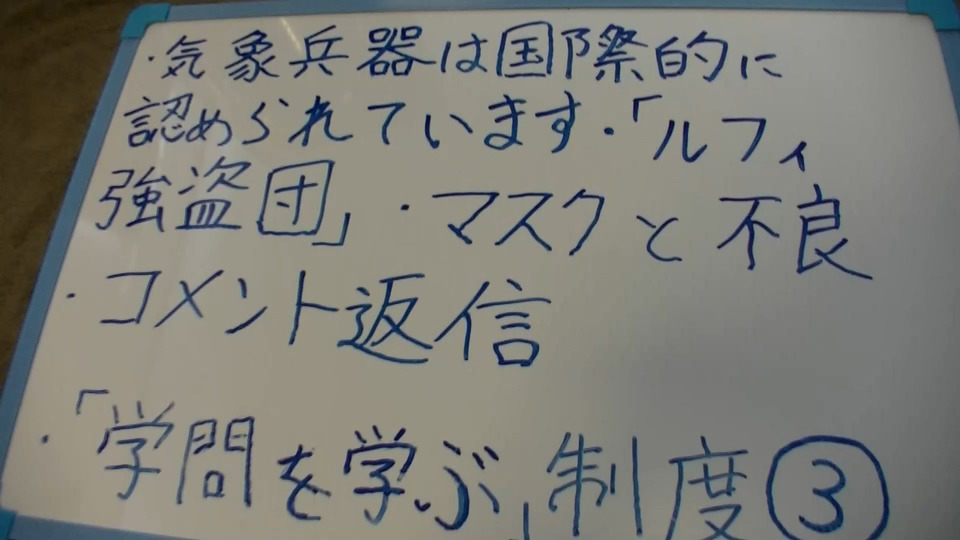 ・気象兵器は国際的に
認められています・「ルフィ
強盗団」・マスクと不良
・コメント返信
・「学問を学ぶ」制度③